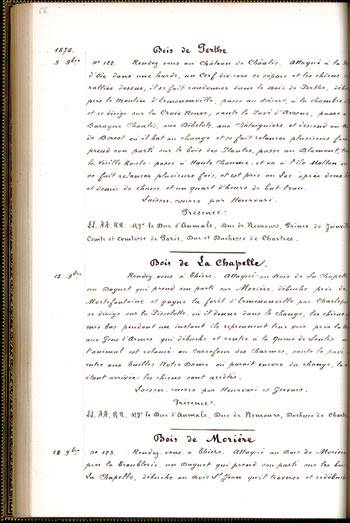 66
1872.
Bois de Perthe
9 9bre
N° 122. Rendez-vous au Château de Chaalis. Attaqué à la
d'Oie dans une harde, un Cerf dix-cors se sépare et les chiens
ralliés dessus, il se fait randonner dans le Bois de Perthe,
près le Moulin d'Ermenonville, passe au Désert, à la chambre
et se dirige sur la Croix Neuve, saute le Parc d'Avesne, passe
Baraque Chaalis, aux Bibelots, aux Châtaigniers et descend au
de Borest où il bat au change se fait relancer plusieurs fois
prend son parti sur le bois des Plantes, passe au Blamont,
la Vieille Route, passe à Haute Chaume, et va à l'île Mollton
se fait relancer plusieurs fois, et est pris au Lac après deux
et demie de chasse et un quart d'heure de bat l'eau.
Laisser-courre par Hourvari.
Présence:
LL. AA. RR. Mgr le Duc d'Aumale, Duc de Nemours, Prince de
Comte et comtesse de Paris, Duc et Duchesse de Chartres.
Bois de La Chapelle.
13 9bre
Rendez-vous à Thiers. Attaqué au Bois de La Chapelle
un Daguet qui prend son parti sur Morière, débuche près de
Mortefontaine et gagne la forêt d'Ermenonville par Charlepont
se dirige sur la Pissolotte, où il donne dans le change, les chiens
mis bas pendant un instant ils reprennent leur voie près la
aux Gens d'Armes qui débuche et rentre à la Queue de Senlis
l'animal est relancé au Carrefour des Charmes, saute le pavé
entre aux Bailles Notre Dame où parait encore du change, la
étant arrivée les chiens sont arrêtés.
Laisser-courre par Hourvari et Gervais.
Présence:
LL. AA. RR. Mgr le Duc d'Aumale, Duc de Nemours, Duchesse de
Bois de Morière
18 9bre
N° 123. Rendez-vous à Thiers. Attaqué au Bois de Morière
près la Troublerie, un Daguet qui prend son parti sur les bois
La Chapelle, débuche au Bois St Jean qu'il traverse et